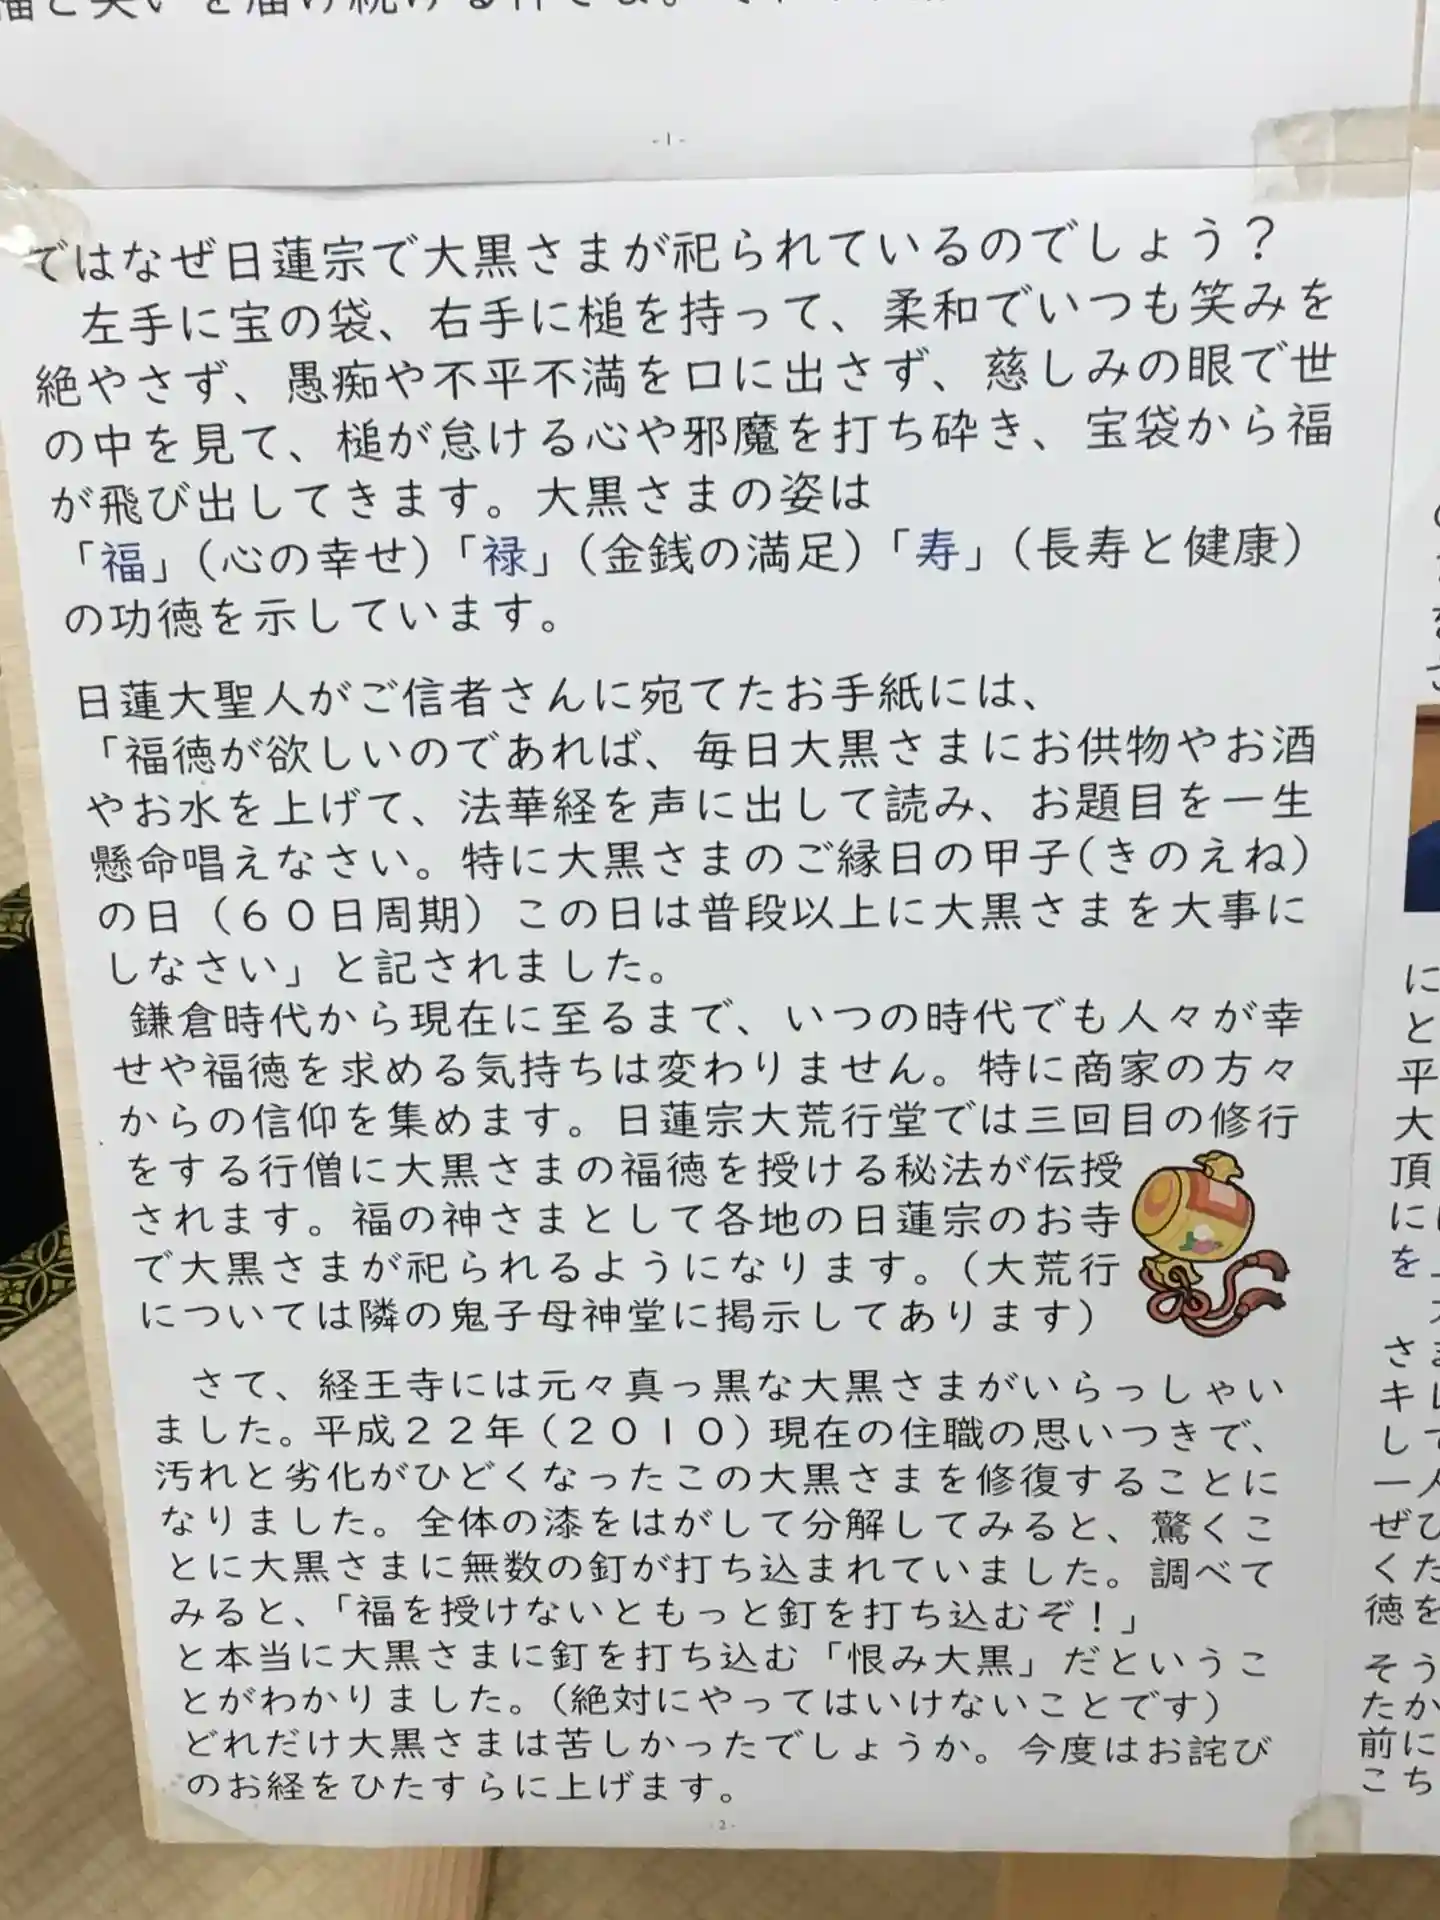 -1-
ではなぜ日蓮宗で大黒さまが祀られているのでしょう？
左手に宝の袋、右手に槌を持って、柔和でいつも笑みを
絶やさず、愚痴や不平不満を口に出さず、慈しみの眼で世
の中を見て、槌が怠ける心や邪魔を打ち砕き、宝袋から福
が飛び出してきます。大黒さまの姿は
「福」（心の幸せ）「禄」（金銭の満足）「寿」（長寿と健康）
の功徳を示しています。
日蓮大聖人がご信者さんに宛てたお手紙には、
「福徳が欲しいのであれば、毎日大黒さまにお供物やお酒
やお水を上げて、法華経を声に出して読み、お題目を一生
懸命唱えなさい。特に大黒さまのご縁日の甲子（きのえね）
の日（６０日周期）この日は普段以上に大黒さまを大事に
しなさい」と記されました。
鎌倉時代から現在に至るまで、いつの時代でも人々が幸
せや福徳を求める気持ちは変わりません。特に商家の方々
からの信仰を集めます。日蓮宗大荒行堂では三回目の修行
をする行僧に大黒さまの福徳を授ける秘法が伝授
されます。福の神さまとして各地の日蓮宗のお寺
で大黒さまが祀られるようになります。（大荒行
については隣の鬼子母神堂に掲示してあります）
さて、経王寺には元々真っ黒な大黒さまがいらっしゃい
ました。平成２２年（２０１０）現在の住職の思いつきで、
汚れと劣化がひどくなったこの大黒さまを修復することに
なりました。全体の漆をはがして分解してみると、驚くこ
とに大黒さまに無数の釘が打ち込まれていました。調べて
みると、「福を授けないともっと釘を打ち込むぞ！」
と本当に大黒さまに釘を打ち込む「恨み大黒」だというこ
とがわかりました。（絶対にやってはいけないことです）
どれだけ大黒さまは苦しかったでしょうか。今度はお詫び
のお経をひたすらに上げます。
-2-
に
と
平
大
頂
に
を
さ
キレ
して
一人
ぜひ
くだ
徳を
そう
たか
前に
こち